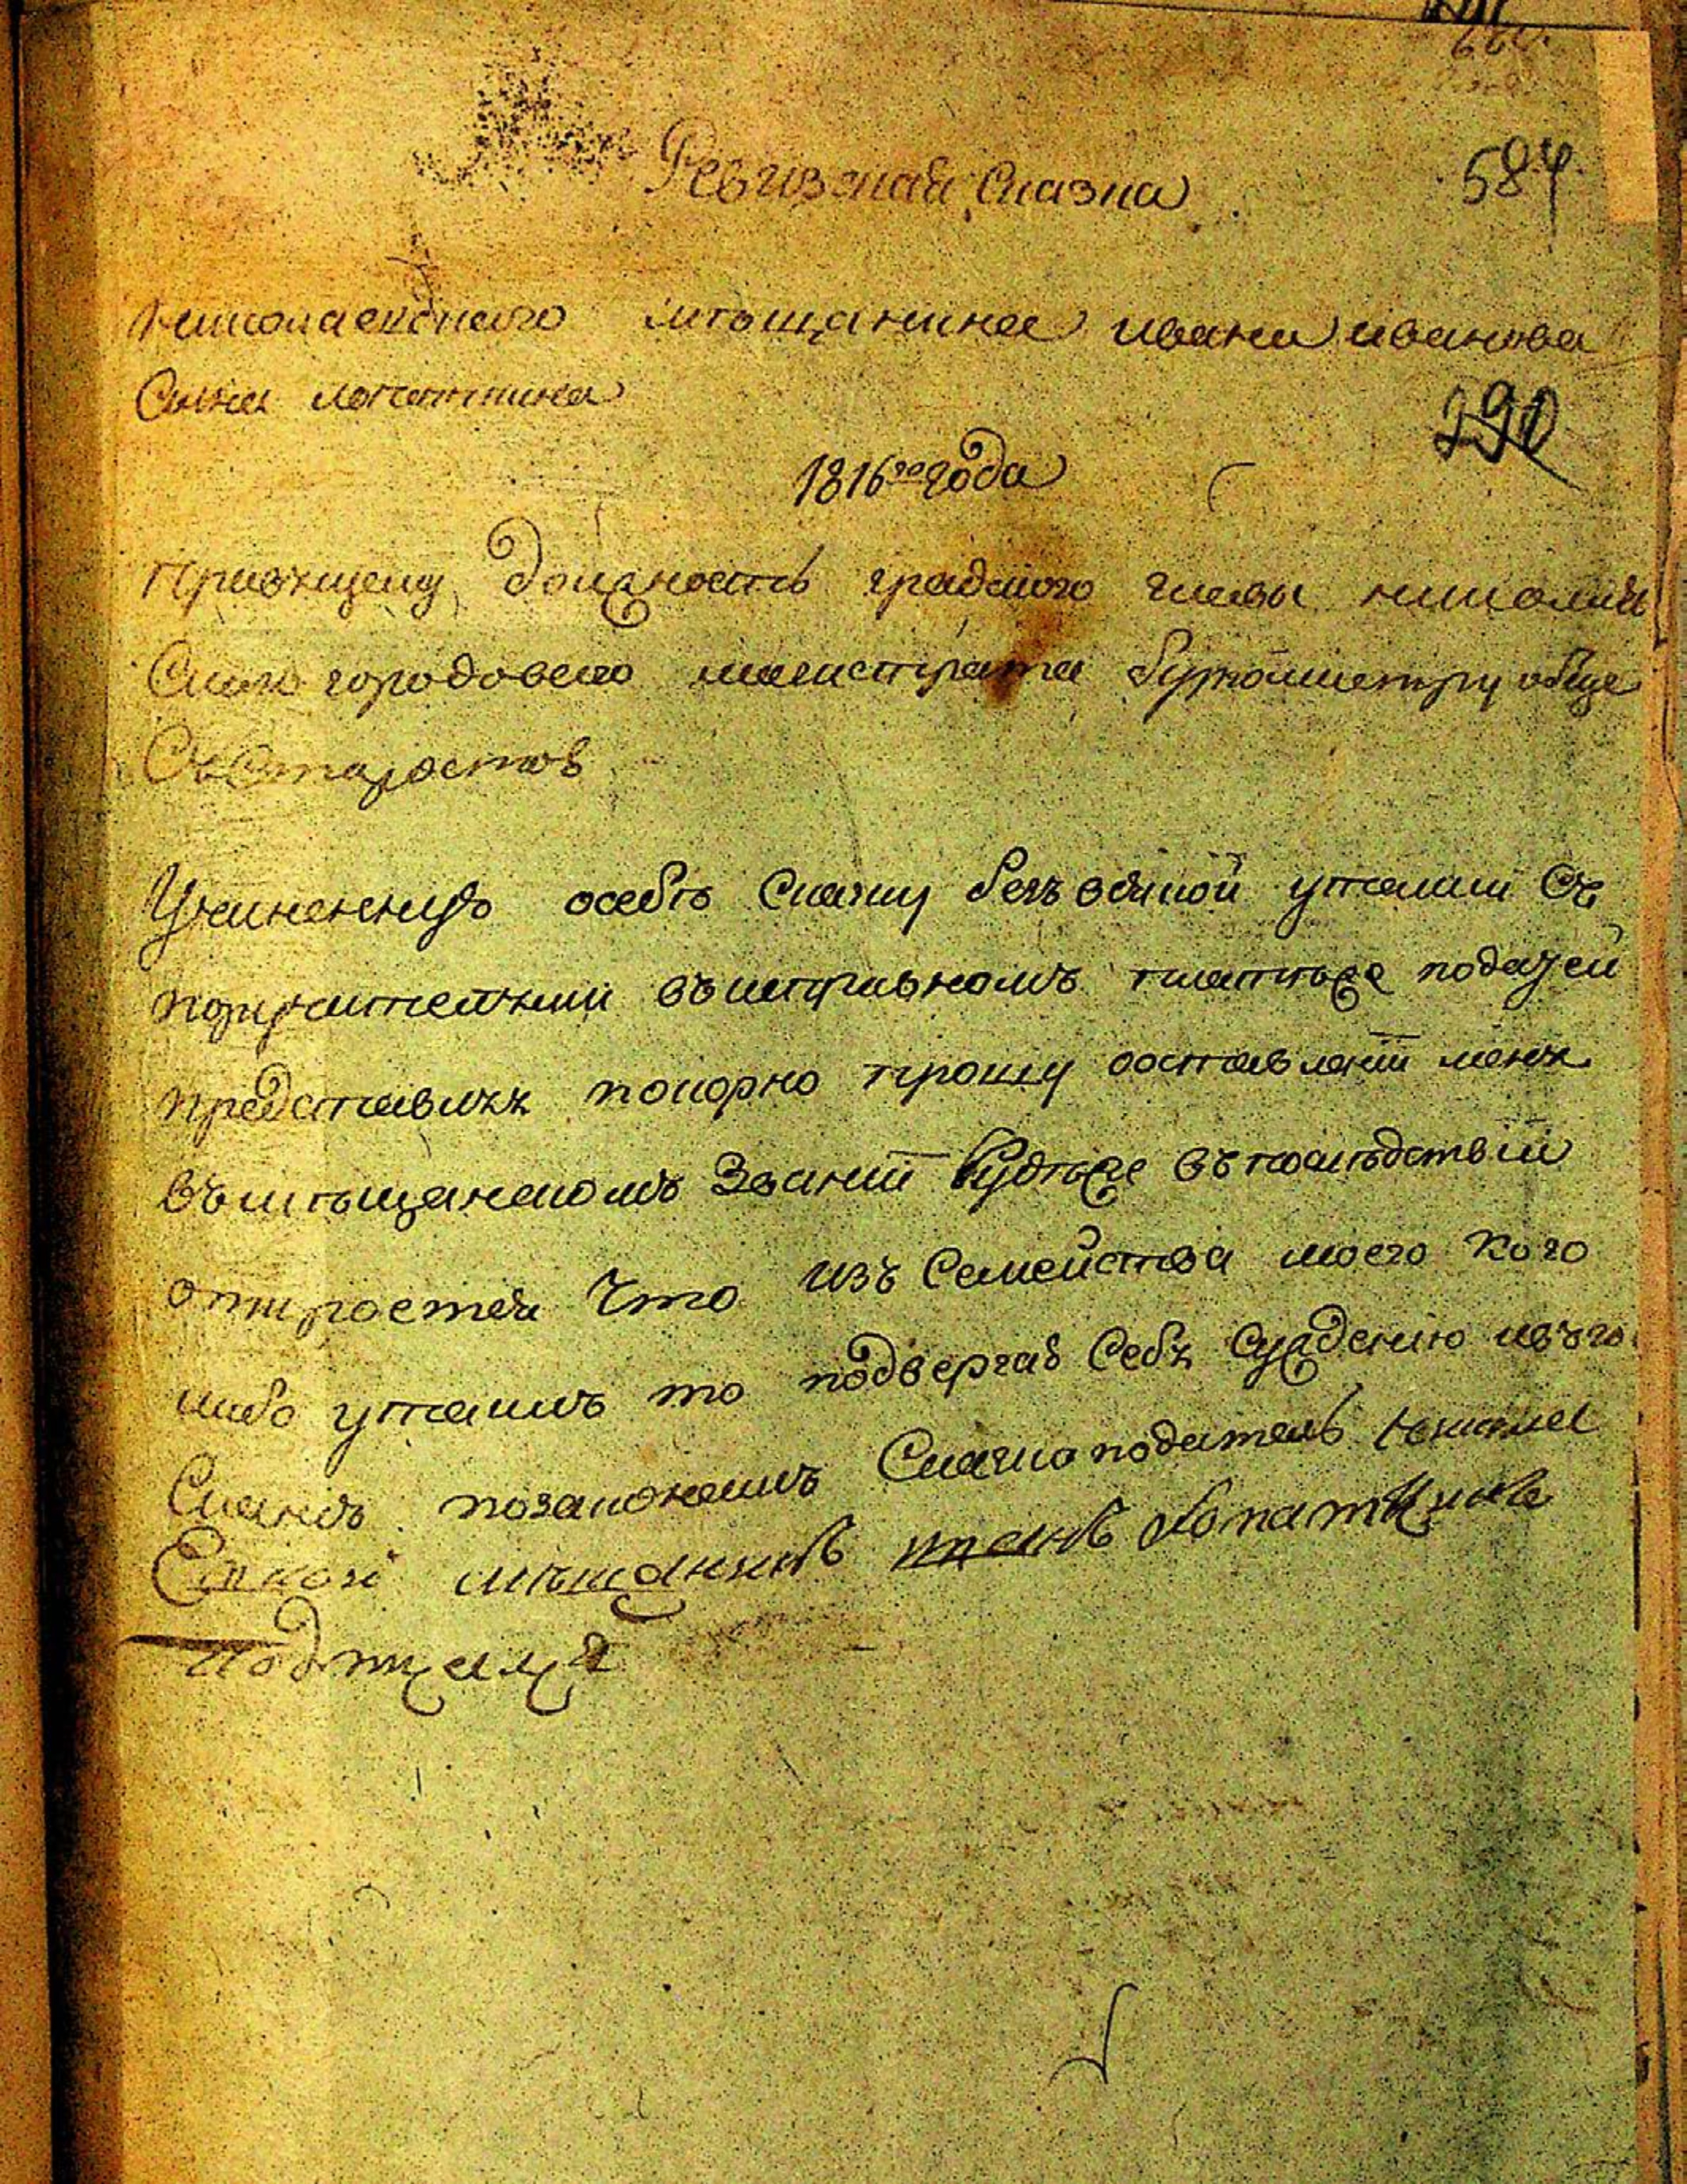 584
Ревизная Сказка
Николаевского мѣщанина ивана иванова
Сына лопатина
290
1816го года
Правящему должность градского главы николаев
Скаго городоваго магистрата бургомистру обще
Съ Старостов
Учиненную особѣ Скаску безъ всякой утайки Съ
поручителями въ исправномъ платеже податей
представляя покорно прошу оставленii меня
въ мѣщанскомъ Званiи буде же въ последствiи
откроется Что изъ Семейства моего кого
либо утаилъ то подвергаю Себя Суждению
позаконамъ Сказкоподатель никола
Евской мѣщанинъ иванъ Лопаткинъ